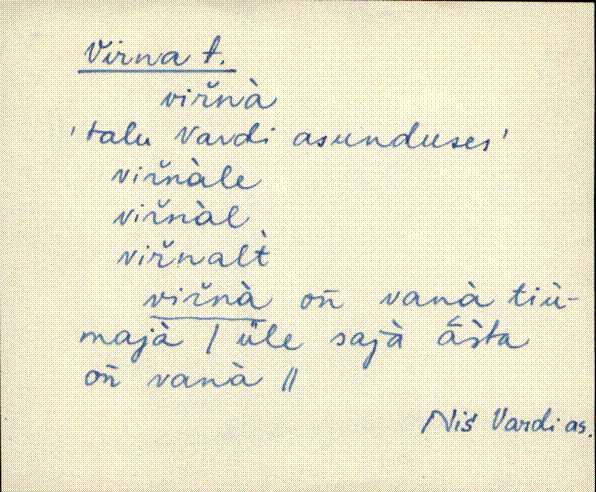 Virna t.
viřnà
'talu Vardi asunduses'
viřnàle
viřnàl
viřnalt̀
viřnà on̄ vanà tiù-
majà / üle sajà ā̬s̀ta
on̄ vanà //
Niš Vardi as.